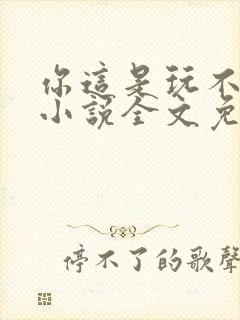 你這是玩不
小說全文免
停不了的歌聲